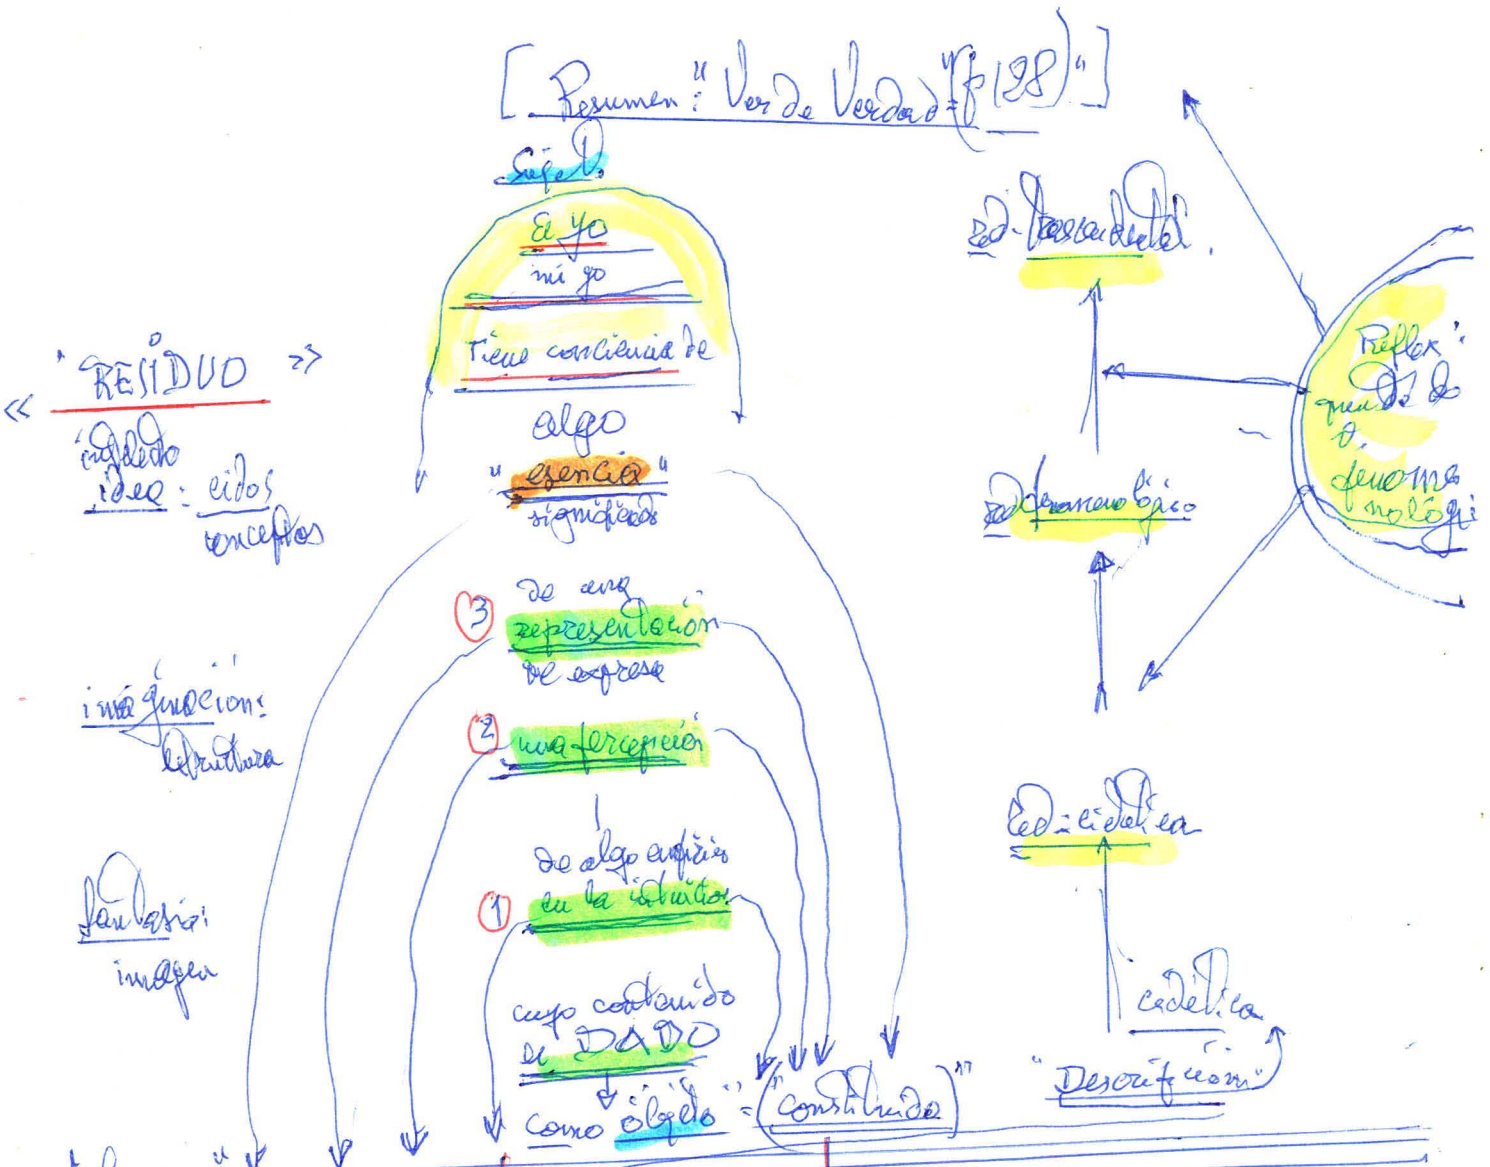 [ Resumen: "Ver de Verdad" (p 128) " ]
Sujeto
El yo
mi yo
Tiene conciencia de
algo
"esencia"
significado
de una
③ representación
que expresa
② una percepción
de algo
① en la intuición
cuyo contenido
es DADO
como "objeto" = ("constituido")"
« RESIDUO »
intelecto
idea: eidos
conceptos
imaginación:
estructura
fantasía:
imagen
red. trascendental.
red fenomenológico
Red. eidética
eidética
"Descripción"
Reflex.
fenome
nológi